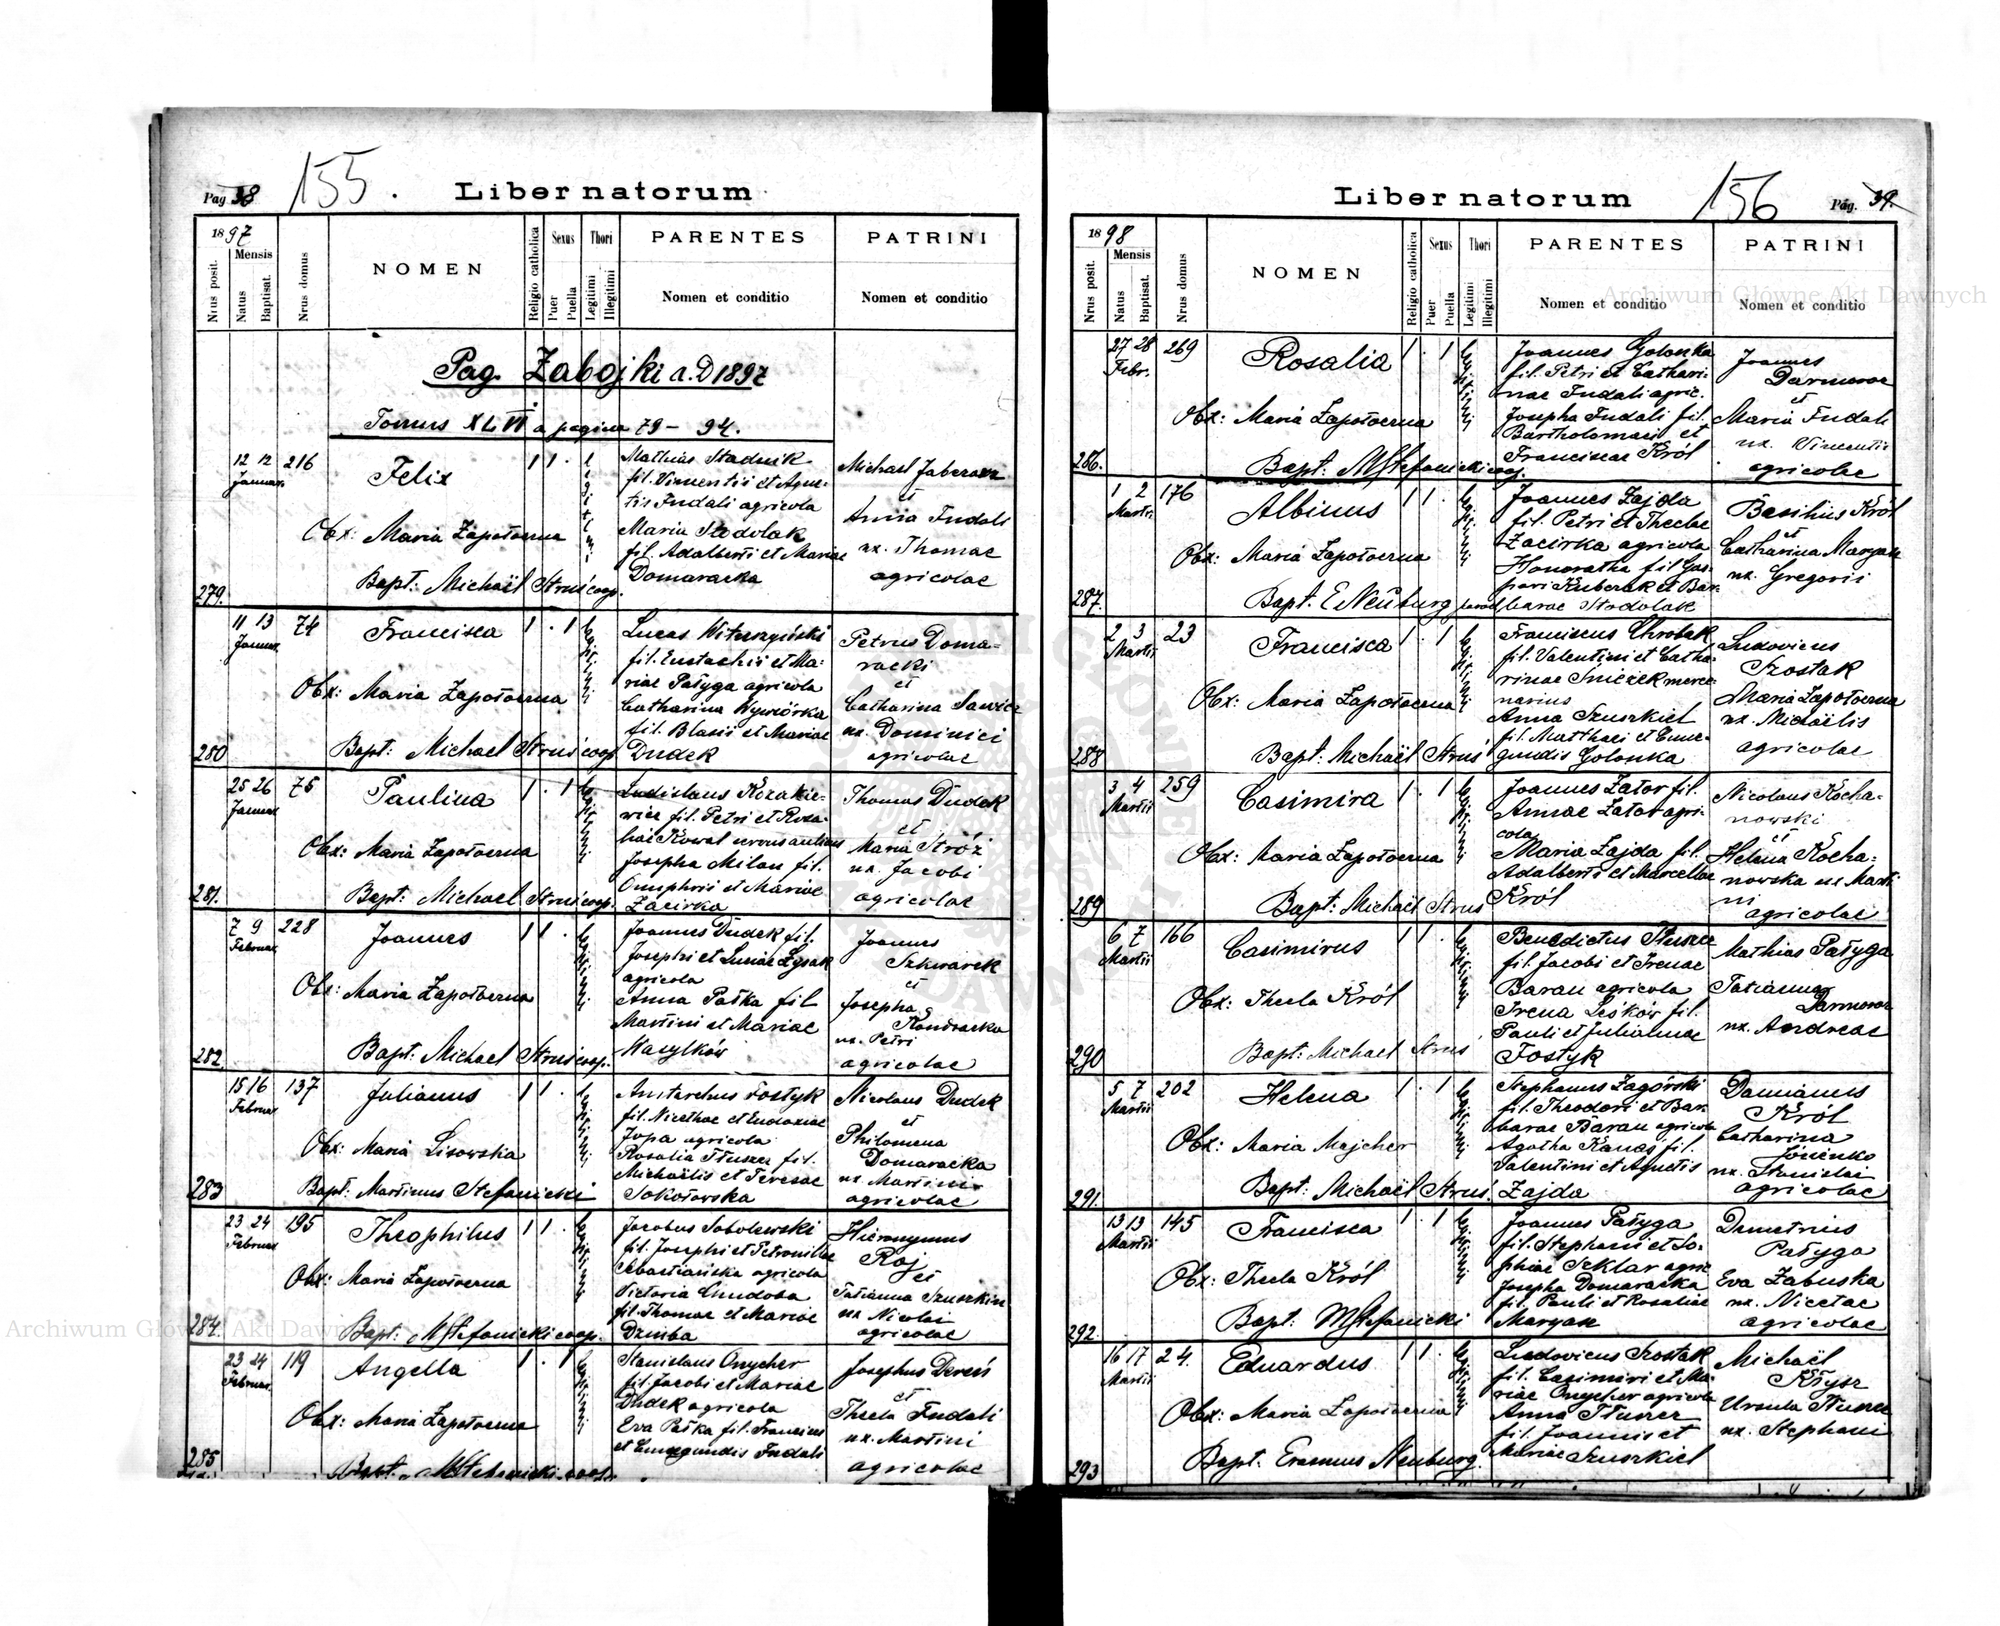 Pag 38
155.
Liber natorum
1897
Nrus posit.
Mensis
Natus
Baptisat.
Nrus domus
NOMEN
Religio catholica
Sexus
Puer
Puella
Thori
Legitimi
Illegitimi
PARENTES
Nomen et conditio
PATRINI
Nomen et conditio
Pag. Zabojki a. D 1897
Tomus XLVI a pagina 79 – 94.
279.
12 12
Januar.
216
Felix
Obx: Maria Zapotoczna
Bapt: Michaël Struś coop.
Mathias Stadnik
fil. Vincentii et Agne-
tis Fudali agricola
Maria Stodolak
fil. Adalberti et Mariae
Domaracka
Michael Jaberowa
et
Anna Fudali
ux. Thomae
agricolae
280
11 13
Januar.
74
Francisca
Obx: Maria Zapotoczna
Bapt: Michael Struś coop
Lucas Witerzyński
fil. Eustachii et Ma-
riae Patyga agricola
Catharina Wywiórka
fil. Blasii et Mariae
Dudek
Petrus Doma-
racki
et
Catharina Sawicz
ux. Dominici
agricolae
281.
25 26
Januar
75
Paulina
Obx: Maria Zapotoczna
Bapt: Michael Struś coop.
Ladislaus Kozakie-
wicz fil. Petri et Rosa-
liae Kowal
Josepha Milan fil.
Onuphrii et Mariae
Zacirka
Thomas Dudek
et
Maria Stróż
ux. Jacobi
agricolae
282.
7 9
Februar
228
Joannes
Obx: Maria Zapotoczna
Bapt: Michael Struś coop.
Joannes Dudek fil.
Josephi et Luciae Łysak
agricola
Anna Pałka fil
Martini et Mariae
Wasylków
Joannes
Szkwarek
et
Josepha
Kondracka
ux. Petri
agricolae
283
15 16
Februar
137
Julianus
Obx: Maria Lisowska
Bapt: Martinus Stefanicki
Anistarchus Fostyk
fil. Nicethae et Eudoxiae
Jopa agricola
Rosalia Tłuszcz fil.
Michaëlis et Teresae
Sokołowska
Nicolaus Dudek
et
Philomena
Domaracka
ux. Martini
agricolae
284.
23 24
Februar
195
Theophilus
Obx: Maria Zapotoczna
Bapt: M Stefanicki coop.
Jacobus Sobolewski
fil. Josephi et Petronillae
Sebastiańska agricola
Victoria Chudoba
fil. Thomae et Mariae
Dziuba
Hieronymus
Roj
et
Tatianna Szuszkiew
ux Nicolai
agricolae
285
23 24
Februar.
119
Angella
Obx: Maria Zapotoczna
Bapt. M Stefanicki coop.
Stanislaus Onycher
fil. Jacobi et Mariae
Dudek agricola
Eva Pałka fil. Francisci
et Cunegundis Fudali
Josephus Dereń
et
Thecla Fudali
ux. Martini
agricolae
Liber natorum
156
Pág. 39.
1898
Nrus posit.
Mensis
Natus
Baptisat.
Nrus domus
NOMEN
Religio catholica
Sexus
Puer
Puella
Thori
Legitimi
Illegitimi
PARENTES
Nomen et conditio
PATRINI
Nomen et conditio
286.
27 28
Febr.
269
Rosalia
Obx: Maria Zapotoczna
Bapt: M Stefanicki coop.
Joannes Golonka
fil. Petri et Cathari-
nae Fudali agric.
Josepha Fudali fil.
Bartholomaei et
Franciscae Król
Joannes
Darmoroz
et
Maria Fudali
ux. Vincentii
agricolae
287.
1 2
Martii
176
Albinus
Obx: Maria Zapotoczna
Bapt. E Neuburg
Joannes Zajda
fil. Petri et Theclae
Zacirka agricola
Honoratha fil Gas-
pari Kuberak et Bar-
barae Stodolak
Basilius Król
et
Catharina Maryak
ux. Gregorii
288
2 3
Martii
23
Francisca
Obx: Maria Zapotoczna
Bapt: Michaël Struś
Franciscus Chrobak
fil. Valentini et Catha-
rinae Śnieżek merce-
narius
Anna Szuszkiel
fil. Matthaei et Cune-
gundis Golonka
Ludovicus
Szostak
Maria Zapotoczna
ux. Michaëlis
agricolae
289
3 4
Martii
259
Casimira
Obx: Maria Zapotoczna
Bapt: Michaël Struś
Joannes Zator fil.
Annae Zator agri-
cola
Maria Zajda fil.
Adalberti et Marcellae
Król
Nicolaus Kocha-
nowski
et
Helena Kocha-
nowska ux Marti-
ni
agricolae
290
6 7
Martii
166
Casimirus
Obx: Thecla Król
Bapt: Michael Struś
Benedictus Tłuszcz
fil. Jacobi et Irenae
Baran agricola
Irena Leśków fil.
Pauli et Juliannae
Fostyk
Mathias Patyga
Tatianna
Darmoroz
ux. Andreae
291.
5 7
Martii
202
Helena
Obx: Maria Majcher
Bapt: Michaël Struś.
Stephanus Zagórski
fil. Theodori et Bar-
barae Baran agricola
Agatha Kanas fil.
Valentini et Agnetis
Zajda
Damianus
Król
Catharina
ux. Stanislai
agricolae
292.
13 13
Martii
145
Francisca
Obx: Thecla Król
Bapt: M Stefanicki
Joannes Patyga
fil. Stephani et So-
phiae Szklar agric
Josepha Domaracka
fil. Pauli et Rosaliae
Maryak
Demetrius
Patyga
Eva Zabuska
ux. Nicetae
agricolae
293
16 17
Martii
24.
Eduardus
Obx: Maria Zapotoczna
Bapt. Erasmus Neuburg.
Ludovicus Szostak
fil. Casimiri et Ma-
riae Onycher agricola
Anna Tłuszcz
fil. Joannis et
Mariae Szuszkiel
Michaël
Kłysz
Ursula Tłuszcz
ux. Stephani
Archiwum Główne Akt Dawnych
Archiwum Główne Akt Dawnych